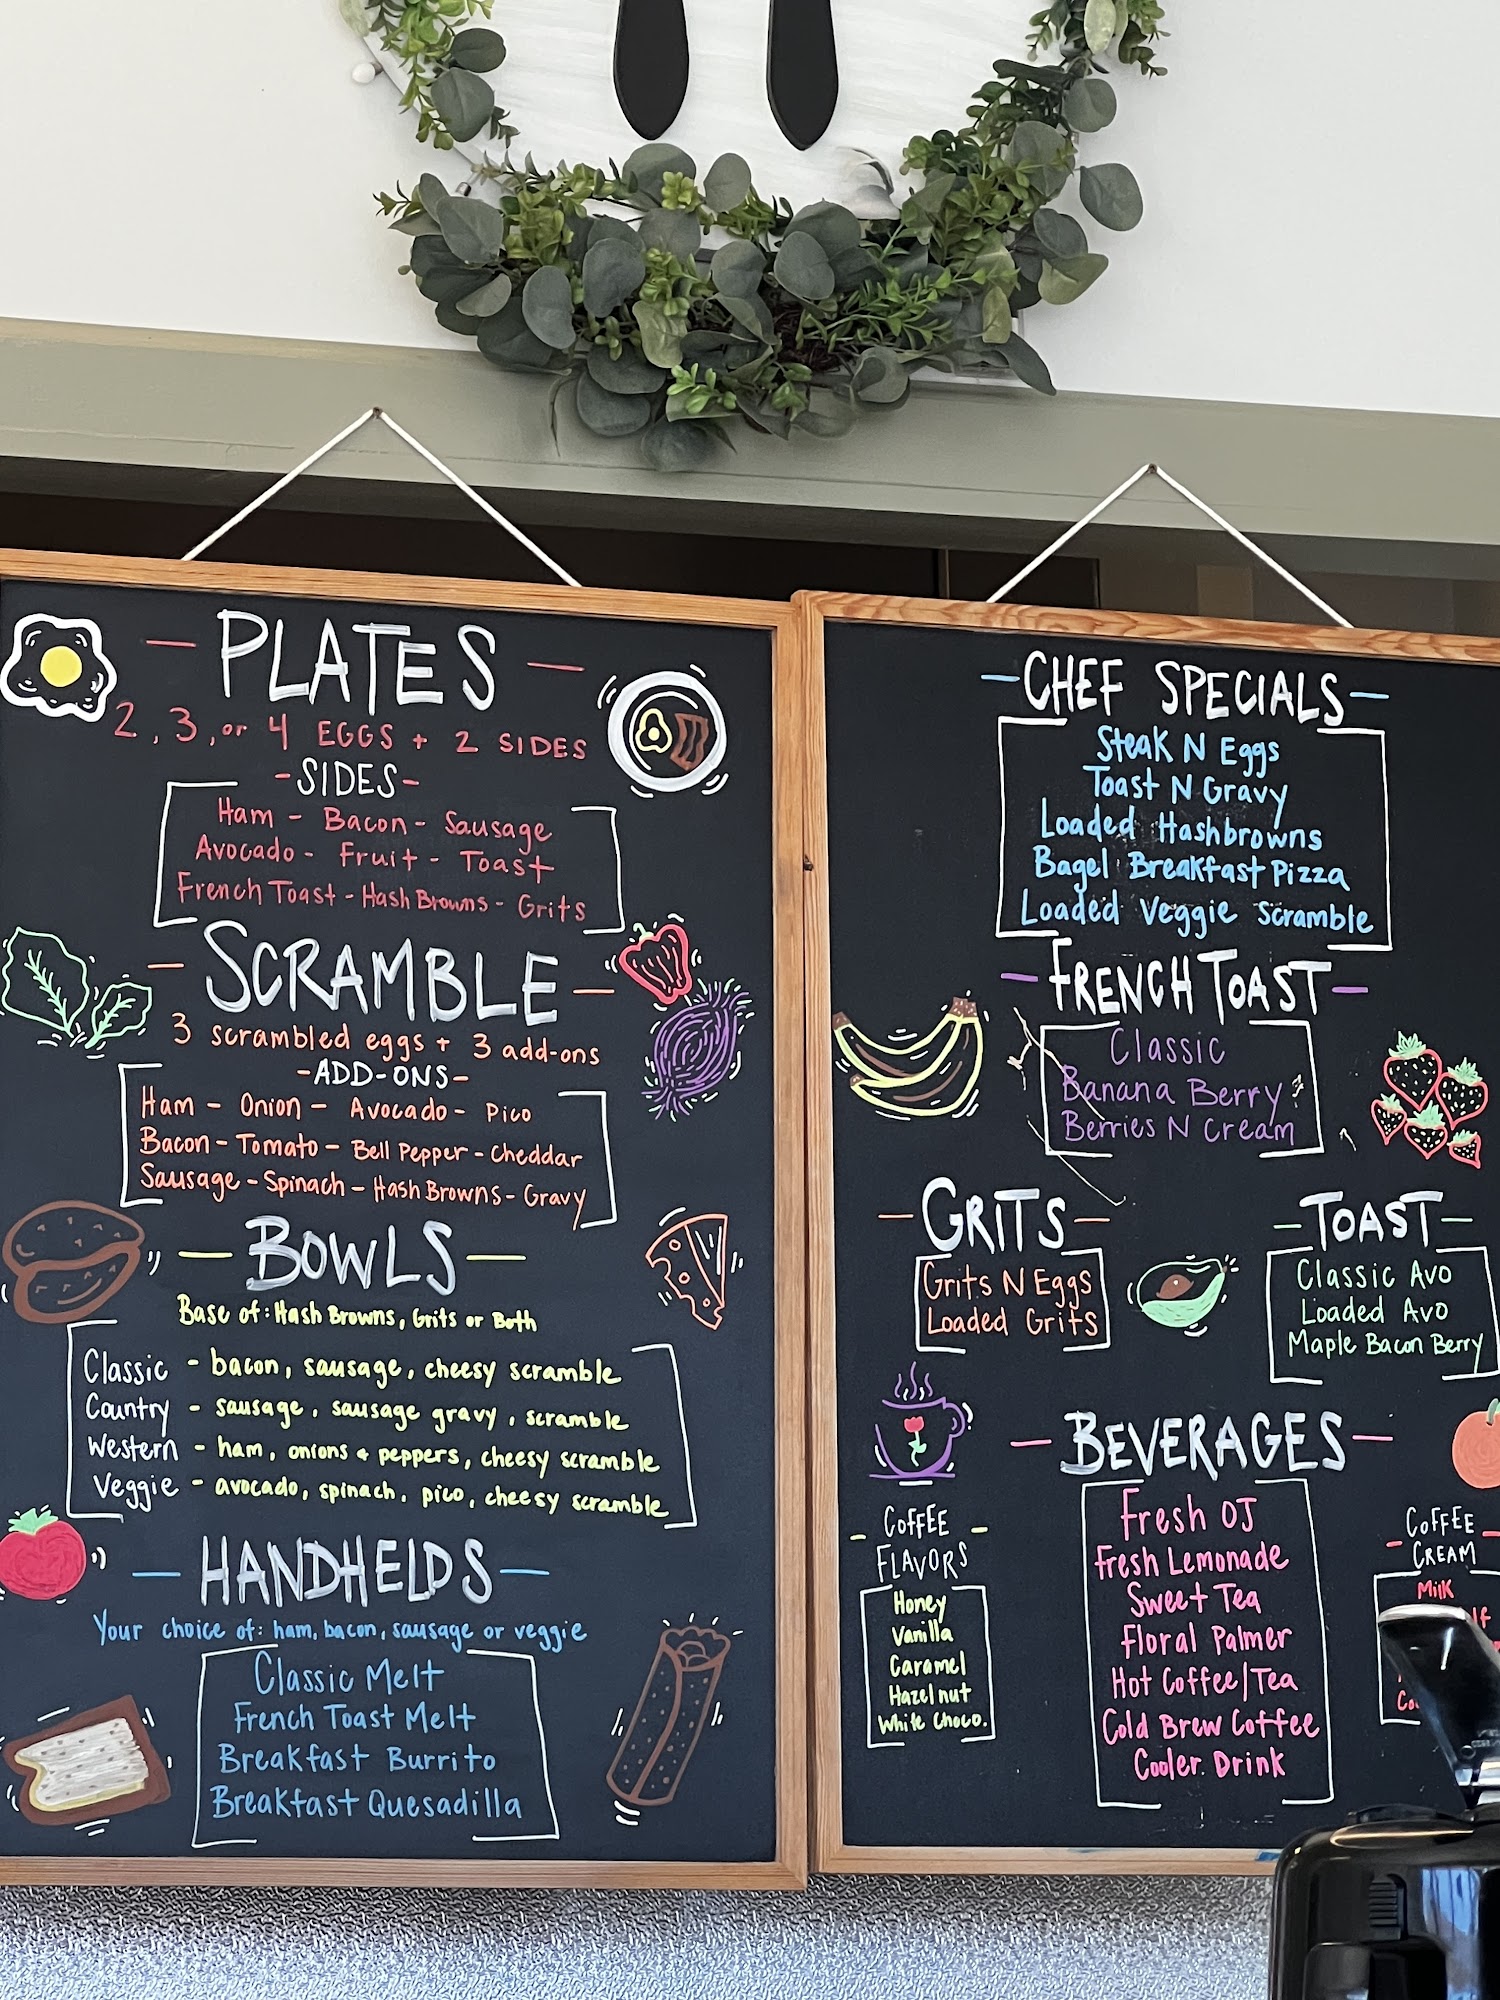 PLATES
2, 3, or 4 EGGS + 2 SIDES
-SIDES-
Ham - Bacon - Sausage
Avocado - Fruit - Toast
French Toast - Hash Browns - Grits
SCRAMBLE
3 scrambled eggs + 3 add-ons
-ADD-ONS-
Ham - Onion - Avocado - Pico
Bacon - Tomato - Bell Pepper - Cheddar
Sausage - Spinach - Hash Browns - Gravy
BOWLS
Base of: Hash Browns, Grits or Both
Classic - bacon, sausage, cheesy scramble
Country - sausage, sausage gravy, scramble
Western - ham, onions & peppers, cheesy scramble
Veggie - avocado, spinach, pico, cheesy scramble
HANDHELDS
Your choice of: ham, bacon, sausage or veggie
Classic Melt
French Toast Melt
Breakfast Burrito
Breakfast Quesadilla
CHEF SPECIALS
Steak N Eggs
Toast N Gravy
Loaded Hashbrowns
Bagel Breakfast Pizza
Loaded Veggie Scramble
FRENCH TOAST
Classic
Banana Berry
Berries N Cream
GRITS
Grits N Eggs
Loaded Grits
TOAST
Classic Avo
Loaded Avo
Maple Bacon Berry
BEVERAGES
Fresh OJ
Fresh Lemonade
Sweet Tea
Floral Palmer
Hot Coffee/Tea
Cold Brew Coffee
Cooler Drink
COFFEE
FLAVORS
Honey
Vanilla
Caramel
Hazelnut
White Choco.
COFFEE
CREAM
Milk